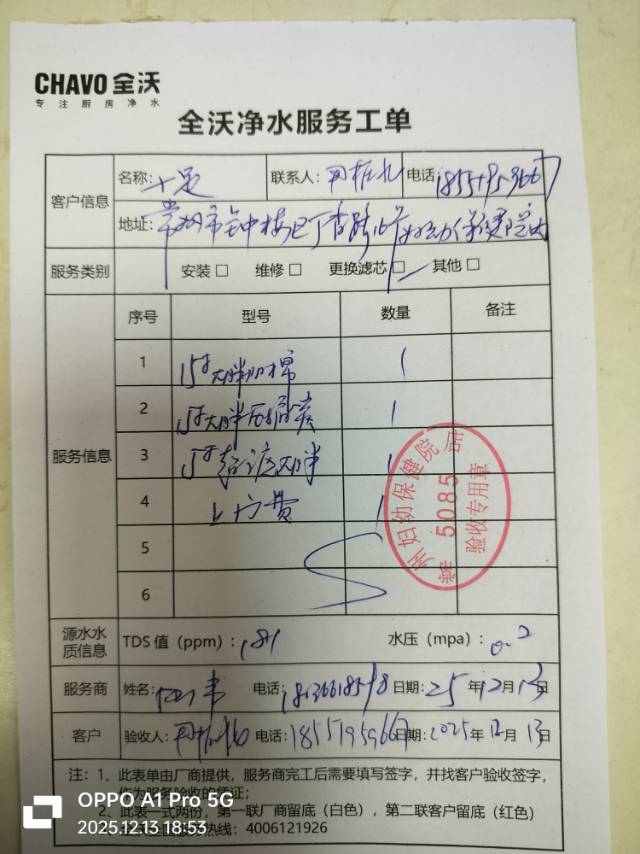 CHAVO 全沃
专注厨房净水
全沃净水服务工单
客户信息 名称: 十足 联系人: 电话:
地址: 常州市钟楼区丁香路16号妇幼保健院内
服务类别 安装□ 维修□ 更换滤芯□ 其他□
序号 型号 数量 备注
服务信息
1 15寸大胖PP棉 1
2 15寸大胖 1
3 大胖 1
4 上门费 1
5
6
常州妇幼保健院店
5085
验收专用章
源水水质信息 TDS值（ppm）: 181 水压（mpa）: 0.2
服务商 姓名: 电话: 日期: 25年12月13日
客户 验收人: 电话: 日期: 2025年12月13日
注: 1、此表单由厂商提供，服务商完工后需要填写签字，并找客户验收签字，
作为服务验收的凭证；
2、此表一式两份，第一联厂商留底（白色），第二联客户留底（红色）
全沃全国服务热线: 4006121926
OPPO A1 Pro 5G
2025.12.13 18:53